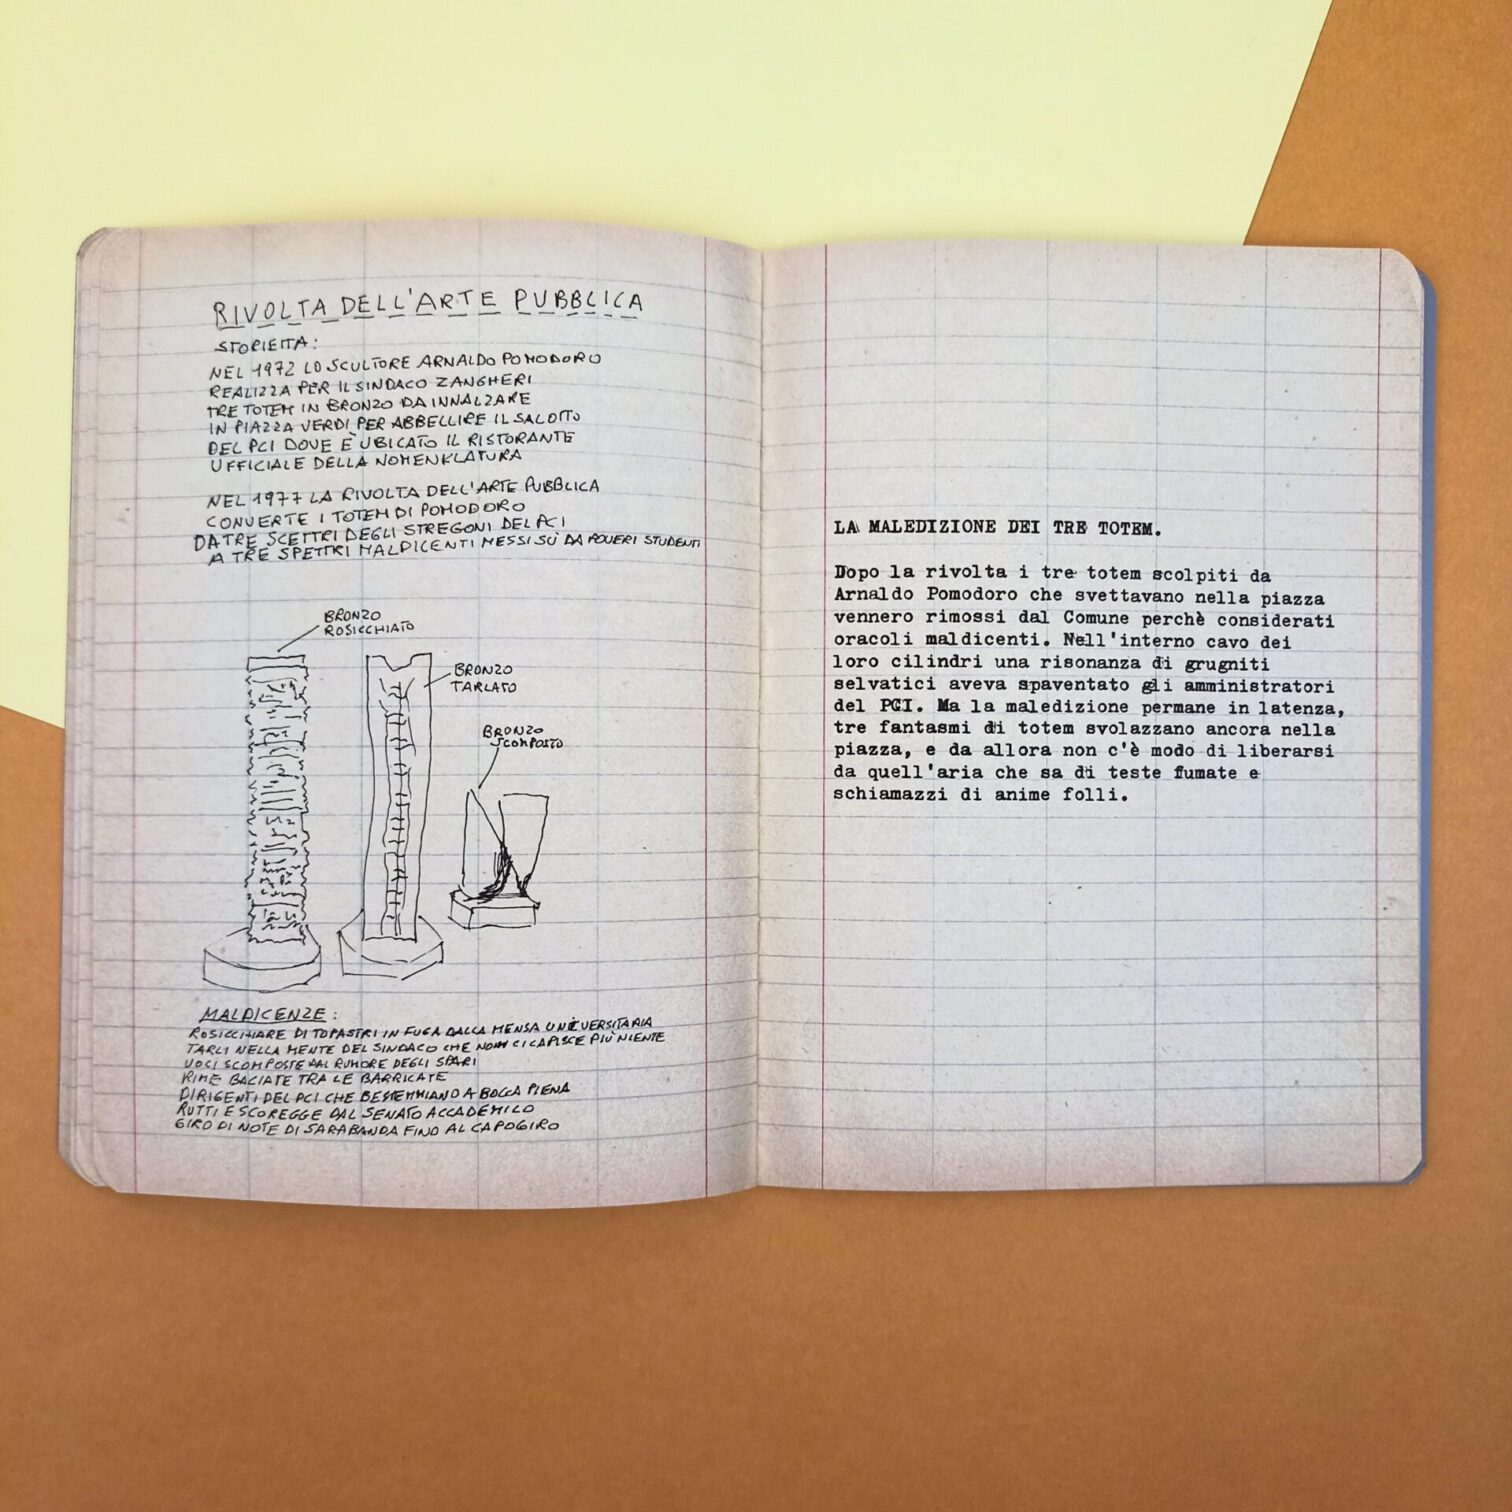 RIVOLTA DELL'ARTE PUBBLICA
STORIETTA:
NEL 1972 LO SCULTORE ARNALDO POMODORO
REALIZZA PER IL SINDACO ZANGHERI
TRE TOTEM IN BRONZO DA INNALZARE
IN PIAZZA VERDI PER ABBELLIRE IL SALOTTO
DEL PCI DOVE È UBICATO IL RISTORANTE
UFFICIALE DELLA NOMENKLATURA
NEL 1977 LA RIVOLTA DELL'ARTE PUBBLICA
CONVERTE I TOTEM DI POMODORO
DA TRE SCETTRI DEGLI STREGONI DEL PCI
A TRE SPETTRI MALDICENTI MESSI SÙ DA POVERI STUDENTI
BRONZO
ROSICCHIATO
BRONZO
TARLATO
BRONZO
SCOMPOSTO
MALDICENZE:
ROSICCHIARE DI TOPASTRI IN FUGA DALLA MENSA UNIVERSITARIA
TARLI NELLA MENTE DEL SINDACO CHE NON CI CAPISCE PIÙ NIENTE
VOCI SCOMPOSTE DAL RUMORE DEGLI SPARI
RIME BACIATE TRA LE BARRICATE
DIRIGENTI DEL PCI CHE BESTEMMIANO A BOCCA PIENA
RUTTI E SCOREGGE DAL SENATO ACCADEMICO
GIRO DI NOTE DI SARABANDA FINO AL CAPOGIRO
LA MALEDIZIONE DEI TRE TOTEM.
Dopo la rivolta i tre totem scolpiti da
Arnaldo Pomodoro che svettavano nella piazza
vennero rimossi dal Comune perchè considerati
oracoli maldicenti. Nell'interno cavo dei
loro cilindri una risonanza di grugniti
selvatici aveva spaventato gli amministratori
del PCI. Ma la maledizione permane in latenza,
tre fantasmi di totem svolazzano ancora nella
piazza, e da allora non c'è modo di liberarsi
da quell'aria che sa di teste fumate e
schiamazzi di anime folli.